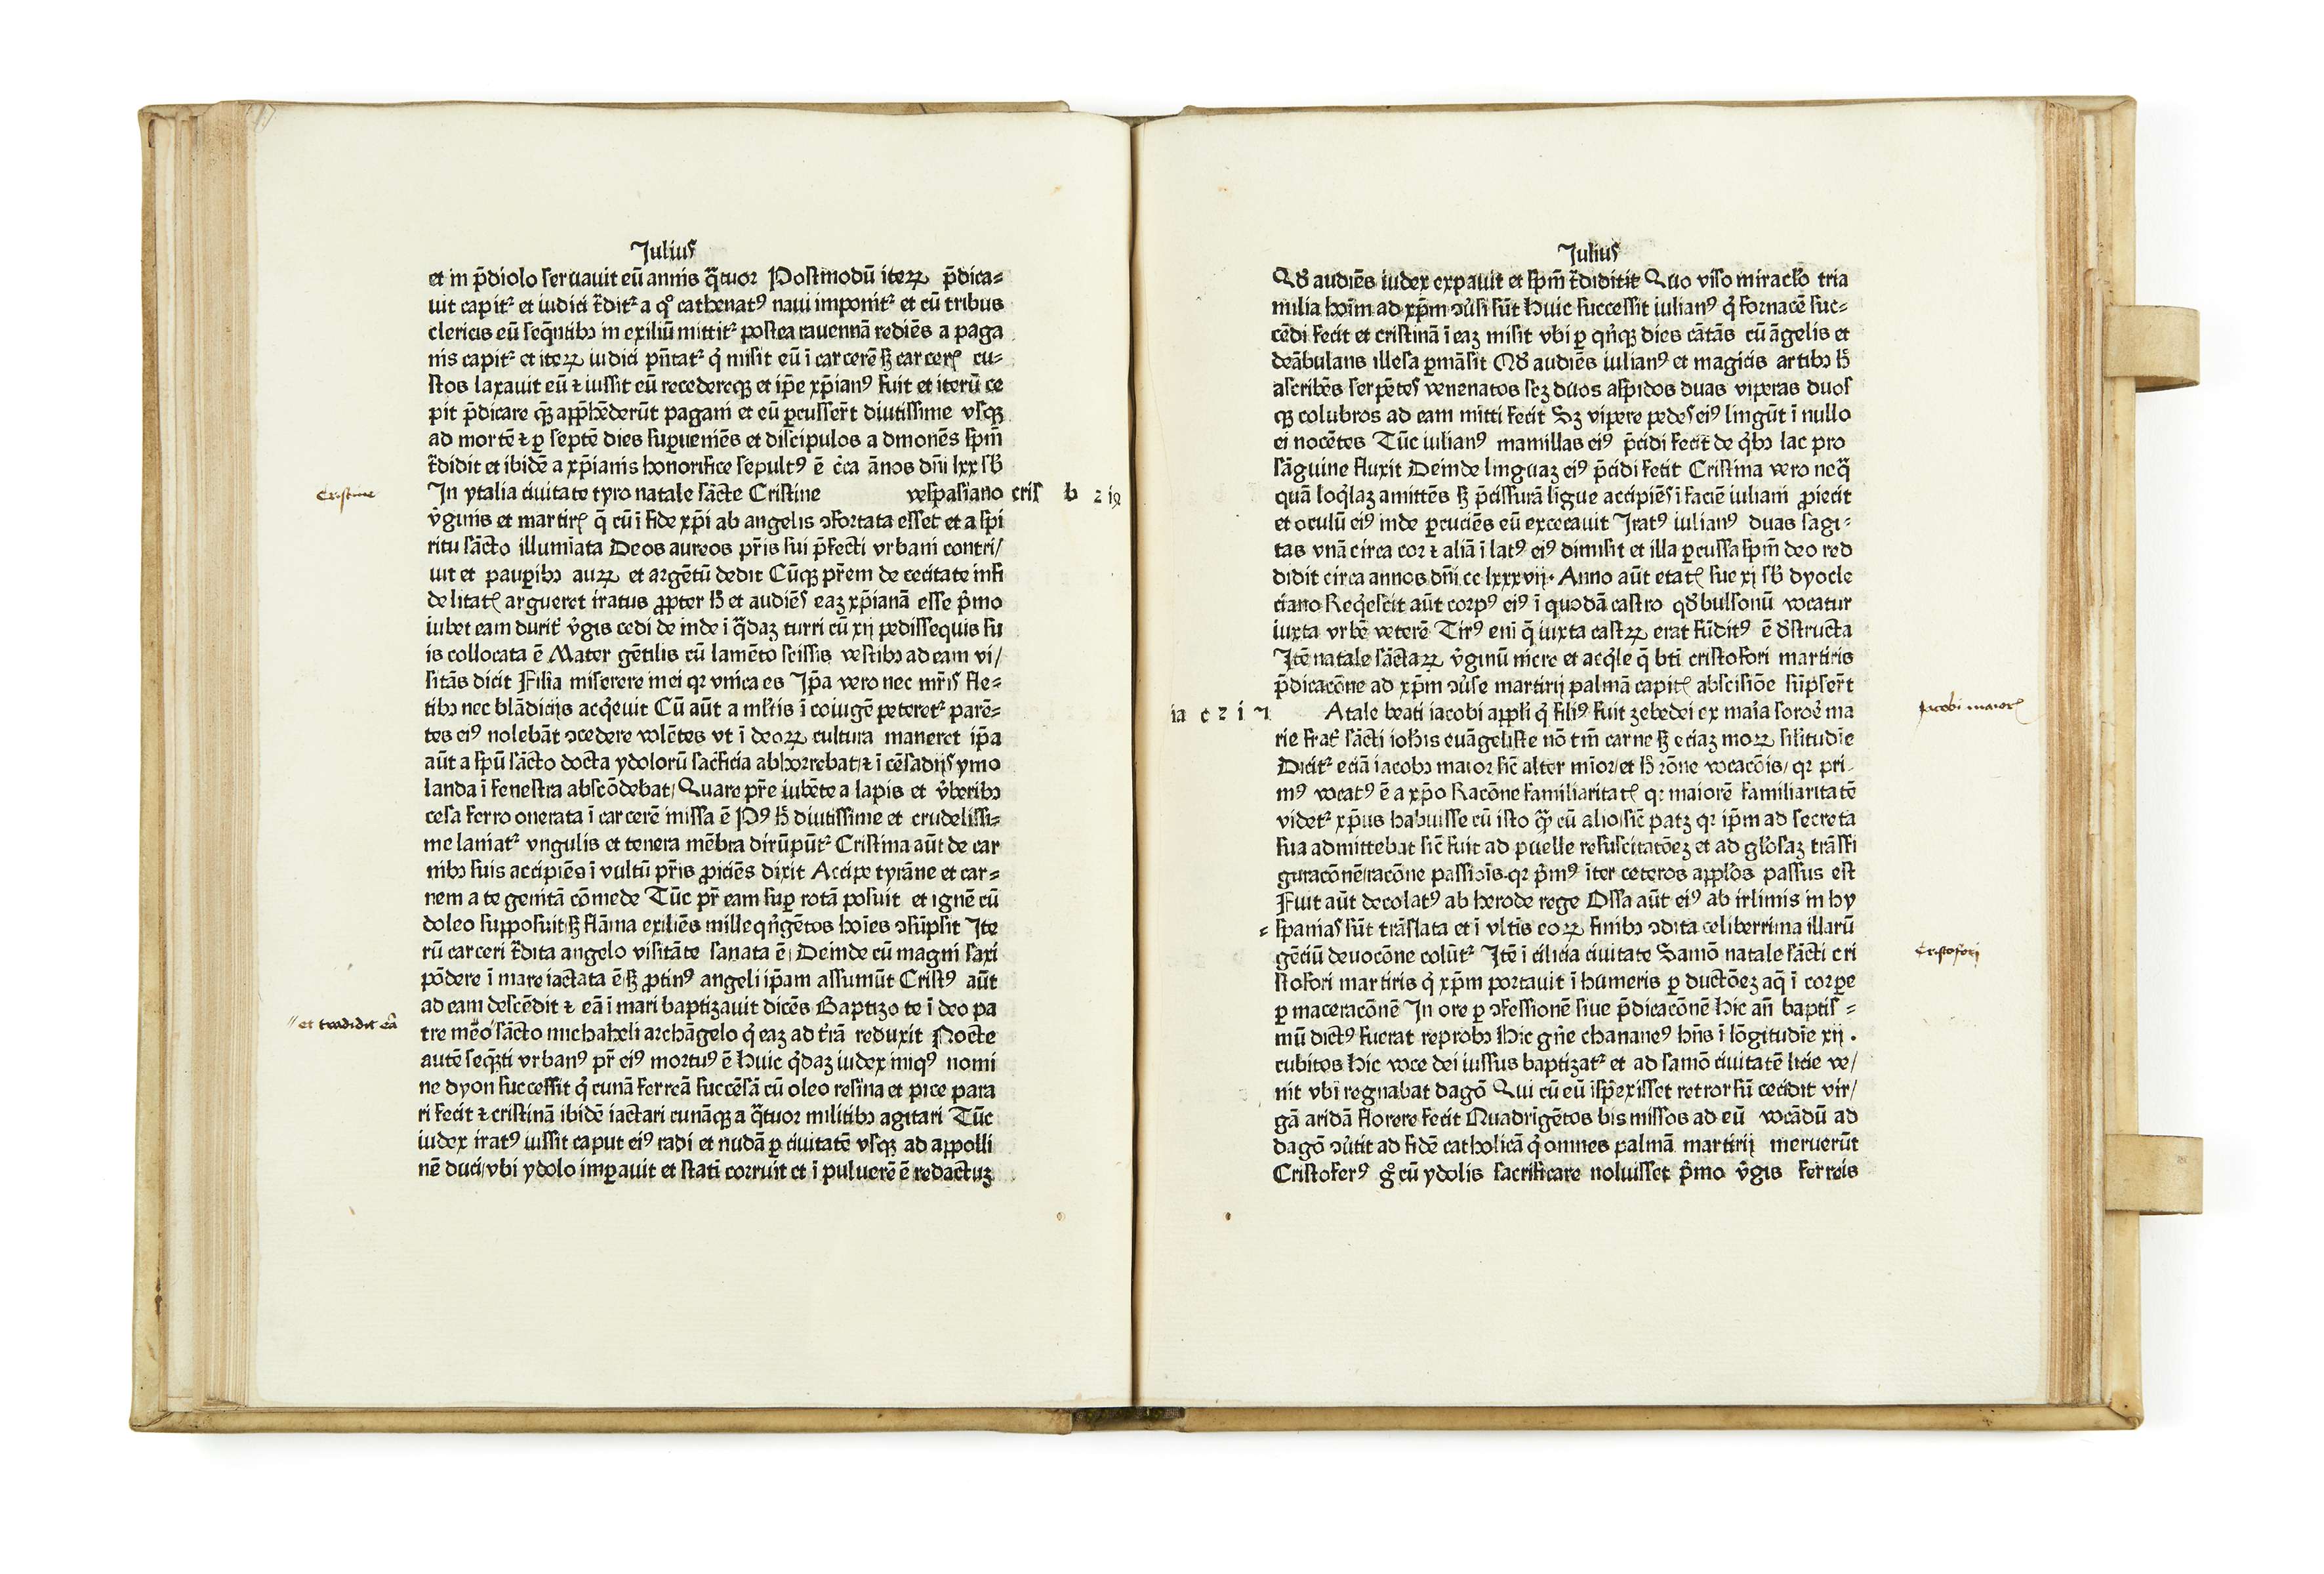 Julius
et in p̄diolo seruauit eū annis q̄tuor Postmodū iteꝝ p̄dica=
uit capit᷑ et iudici t̄dit᷑ a qͦ cathenatꝰ naui imponit᷑ et cū tribus
clericis eū seq̄ntibꝫ in exiliū mittit᷑ postea rauennā rediēs a paga
nis capit᷑ et iteꝝ iudici pn̄tat᷑ q̇ misit eū ī carcerē sꝫ carceꝝ cu=
stos laxauit eū ⁊ iussit eū recedereqꝫ et ip̄e xp̄ianꝰ fuit et iterū ce
pit p̄dicare q̄ꝫ app̄hēderūt pagani et eū ꝑcusser̄t diutissime vsqꝫ
ad mortē ⁊ ꝑ septē dies suꝑueniēs et discipulos admonēs sp̄m
t̄didit et ibidē a xp̄ianis honorifice sepultꝰ ē c̄ca ānos dn̄i lxx sb̄
Cristine
In ytalia ciuitate tyro natale sācte Cristine vespasiano cris b z iꝗ
v̇ginis et martiꝝ q̄ cū ī fide xp̄i ab angelis ɔfortata esset et a spi
ritu sācto illumīata Deos aureos pr̄is sui p̄fecti vrbani contri/
uit et pauꝑibꝫ auꝝ et argētū dedit Cūqꝫ pr̄em de cecitate infi
delitatꝭ argueret iratus ꝓpter h̄ et audiēs eaꝫ xp̄ianā esse p̄mo
iubet eam durit᷑ v̇gis cedi de inde ī q̄daꝫ turri cū xij pedissequis su
is collocata ē Mater gētilis cū lamēto scissis vestibꝫ ad eam vi/
sitās dicit Filia miserere mei qꝛ vnica es Ip̄a vero nec mr̄is fle=
tibꝫ nec blādicijs acq̇euit Cū aūt a ml̄tis ī coiugē peteret᷑ parē=
tes eiꝰ nolebāt ɔcedere volētes vt ī deoꝝ cultura maneret ip̄a
aūt a spū sācto docta ydolorū sac̄ficia abhorrebat/⁊ ī cēsadijs ymo
landa ī fenestra abscōdebat/ Quare pr̄e iubēte a lapis et v̇beribꝫ
cesa ferro onerata ī carcerē missa ē Pꝰ h̄ diutissime et crudelissi=
me laniat᷑ vngulis et tenera mēbra dirūpūt᷑ Cristina aūt de car
nibꝫ suis accipiēs ī vultū pr̄is ꝓiciēs dixit Accipe tyrāne et car=
nem a te genitā cōmede Tūc pr̄ eam suꝑ rotā posuit et ignē cū
doleo supposuit/sꝫ flāma exiliēs mille q̇ngētos hoīes ɔsūpsit Ite
rū carceri t̄dita angelo visitāte sanata ē/ Deinde cū magni saxi
pōdere ī mare iactata ē/sꝫ ꝓtinꝰ angeli ip̄am assumūt Cristꝰ aūt
ad eam descēdit ⁊ eā ī mari baptizauit dicēs Baptizo te ī deo pa
// et tradidit eā
tre meo sācto michaheli archāgelo q̇ eaꝫ ad t̄rā reduxit Nocte
autē seq̄ꝫti vrbanꝰ pr̄ eiꝰ mortuꝰ ē Huic q̇daꝫ iudex iniqꝰ nomi
ne dyon successit q̇ cunā ferreā succēsā cū oleo resina et pice para
ri fecit ⁊ cristinā ibidē iactari cunāqꝫ a q̄tuor militibꝫ agitari Tūc
iudex iratꝰ iussit caput eiꝰ radi et nudā ꝑ ciuitatē vsqꝫ ad appolli
nē duci/vbi ydolo imꝑauit et statī corruit et ī puluerē ē redactuꝫ
Julius
Qd̄ audiēs iudex expauit et sp̄m t̄diditit Quo viso miraclo tria
milia hoīm ad xp̄m ɔu̇si sūt Huic successit iulianꝰ q̇ fornacē suc=
cēdi fecit et cristinā ī eaꝫ misit vbi ꝑ qn̄qꝫ dies cātās cū āgelis et
deābulans illesa ꝑmāsit Qd̄ audiēs iulianꝰ et magicis artibꝫ h̄
ascribēs serpētes venenatos scꝫ duos aspidos duas viperas duos
qꝫ colubros ad eam mitti fecit Sꝫ vipere pedes eiꝰ lingūt ī nullo
ei nocētes Tūc iulianꝰ mamillas eiꝰ p̄cidi fecit de q̇bꝫ lac pro
sāguine fluxit Deinde linguaꝫ eiꝰ p̄cidi fecit Cristina vero neq̄
quā loq̇laꝫ amittēs sꝫ p̄cissurā ligue accipiēs ī faciē iuliani ꝓiecit
et oculū eiꝰ inde ꝑcuciēs eū excecauit Iratꝰ iulianꝰ duas sagi=
tas vnā circa cor ⁊ aliā ī latꝰ eiꝰ dimisit et illa ꝑcussa sp̄m deo red
didit circa annos dn̄i cc lxxxvij. Anno aūt etatꝭ sue xj sb̄ dyocle
ciano Req̇escit aūt corpꝰ eiꝰ ī quodā castro qd̄ bulsonū vocatur
iuxta vrbē veterē Tirꝰ eni q̄ iuxta castꝝ erat fūditꝰ ē dstructa
Itē natale sāctaꝝ v̇ginū nicre et acq̇le q̄ bti cristofori martiris
p̄dicacōne ad xp̄m ɔu̇se martirij palmā capitꝭ abscisiōe sūpser̄t
ia c z i ⁊ Atale beati iacobi appl̄i q̇ filiꝰ fuit zebedei ex maīa sorore ma
Jacobi maioꝝ
rie frat᷑ sācti ioh̄is euāgeliste nō tm̄ carne sꝫ eciaꝫ moꝝ silitudīe
Dicit᷑ eciā iacobꝫ maior sic̄ alter mīor/et h̄ rōne vocacōis/ qꝛ pri
mꝰ vocatꝰ ē a xp̄o Racōne familiaritatꝭ qꝛ maiorē familiaritatē
videt᷑ xp̄us habuisse cū isto q̄ꝫ cū alio/sic̄ patꝫ qꝛ ip̄m ad secreta
sua admittebat sic̄ fuit ad puelle resuscitatōeꝫ et ad gl̄osaꝫ trāsfi
guracōnē/racōne passiōis.qꝛ p̄mꝰ īter ceteros app̄los passus est
Fuit aūt decolatꝰ ab herode rege Ossa aūt eiꝰ ab irlimis in hy
= spanias sūt trāslata et ī vltīs eoꝝ finibꝫ ɔdita celiberrima illarū
gēciū deuocōne colūt᷑ Itē ī cilicia ciuitate Samō natale sācti cri
Cristofori
stofori martiris q̇ xp̄m portauit ī humeris ꝑ ductōeꝫ aq̄ ī corpe
ꝑ maceracōnē In ore ꝑ ɔfessionē siue p̄dicacōnē Hic an̄ baptis =
mū dictꝰ fuerat reprobꝫ Hic gn̄e chananeꝰ hn̄s ī lōgitudīe xij .
cubitos Hic voce dei iussus baptizat᷑ et ad samō ciuitatē licie ve/
nit vbi regnabat dagō Qui cū eū īsp̄exisset retrorsū cecidit vir/
gā aridā florere fecit Quadrigētos bis missos ad eū vocādū ad
dagō ɔu̇tit ad fidē catholicā q̇ omnes palmā martirij meruerūt
Cristoferꝰ gͦ cū ydolis sacrificare noluisset p̄mo v̇gis ferreis